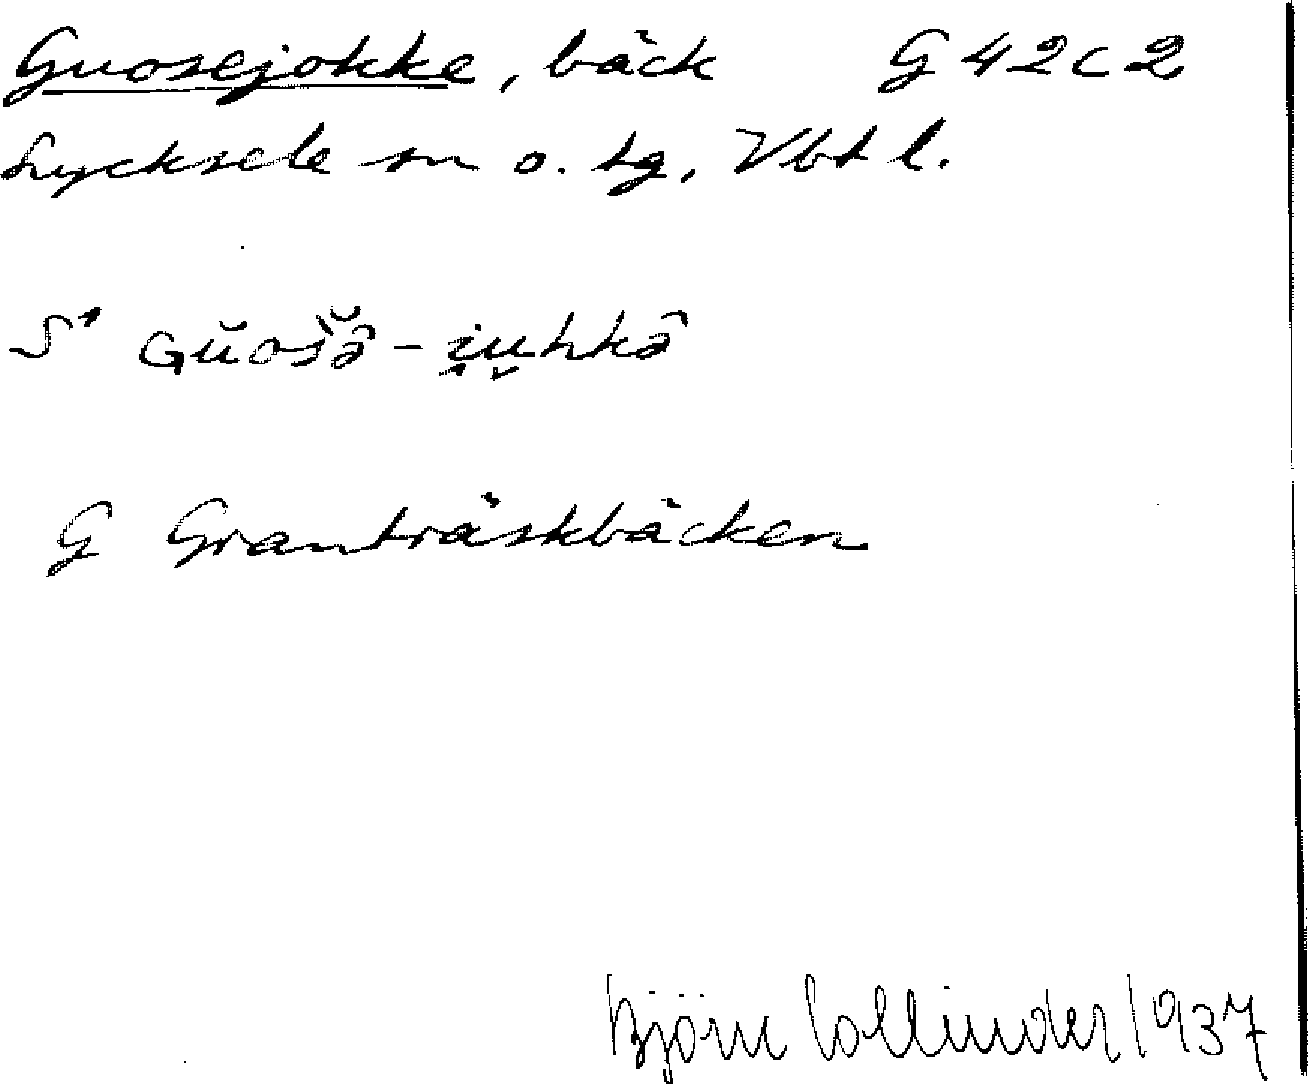 Guosejokke, bäck G 42 c 2
Lycksele sn o. tg, Vbt l.
G Granträskbäcken
Björn Collinder 1937